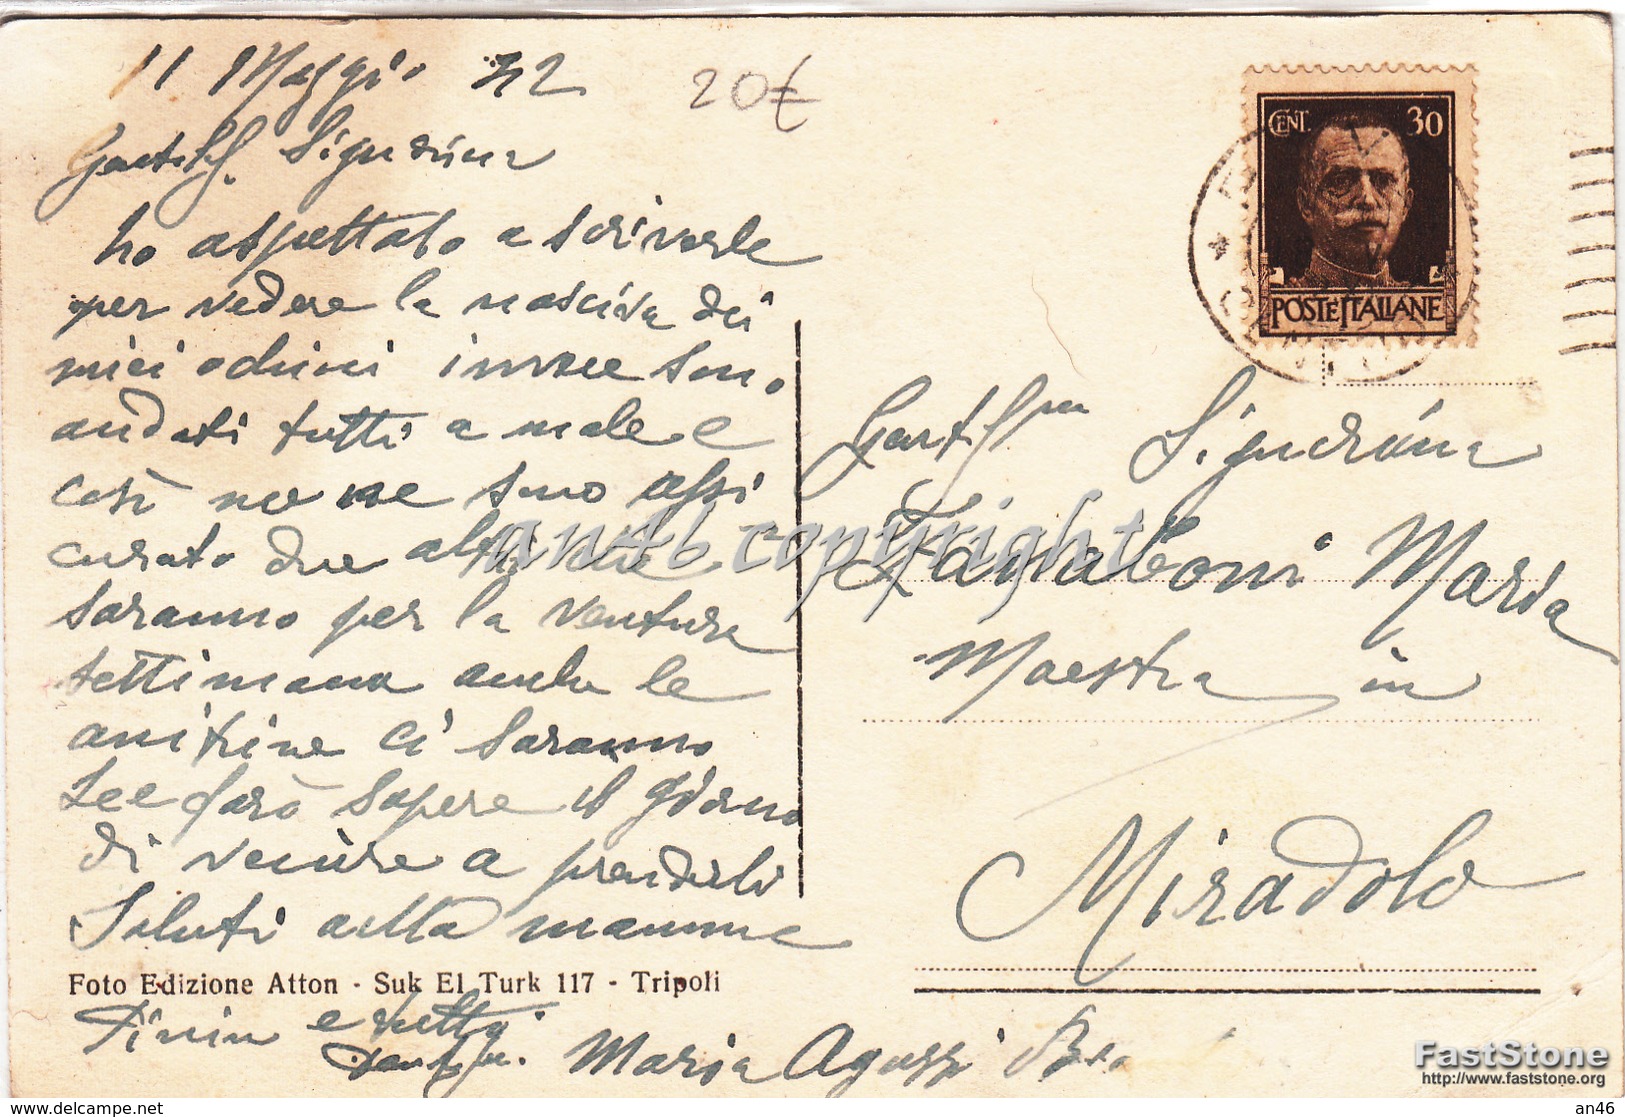 11 Maggio 42
20€
Gentilf. Signorina
ho aspettato a scriverle
per vedere la nascita dei
miei ochini invece sono
andati tutti a male e
così no ne sono assi
curato due altri che
saranno per la ventura
settimana anche le
anitrine ci saranno
Lee farò sapere il giorno
di venire a prenderli
Saluti alla mamma
Foto Edizione Atton - Suk El Turk 117 - Tripoli
Pinin e tutti
Maria Agazzi
CENT. 30
POSTE ITALIANE
Gentilfma Signorina
Fanaboni Maria
Maestra in
Miradolo
an46 copyright
FastStone
http://www.faststone.org
delcampe.net
an46